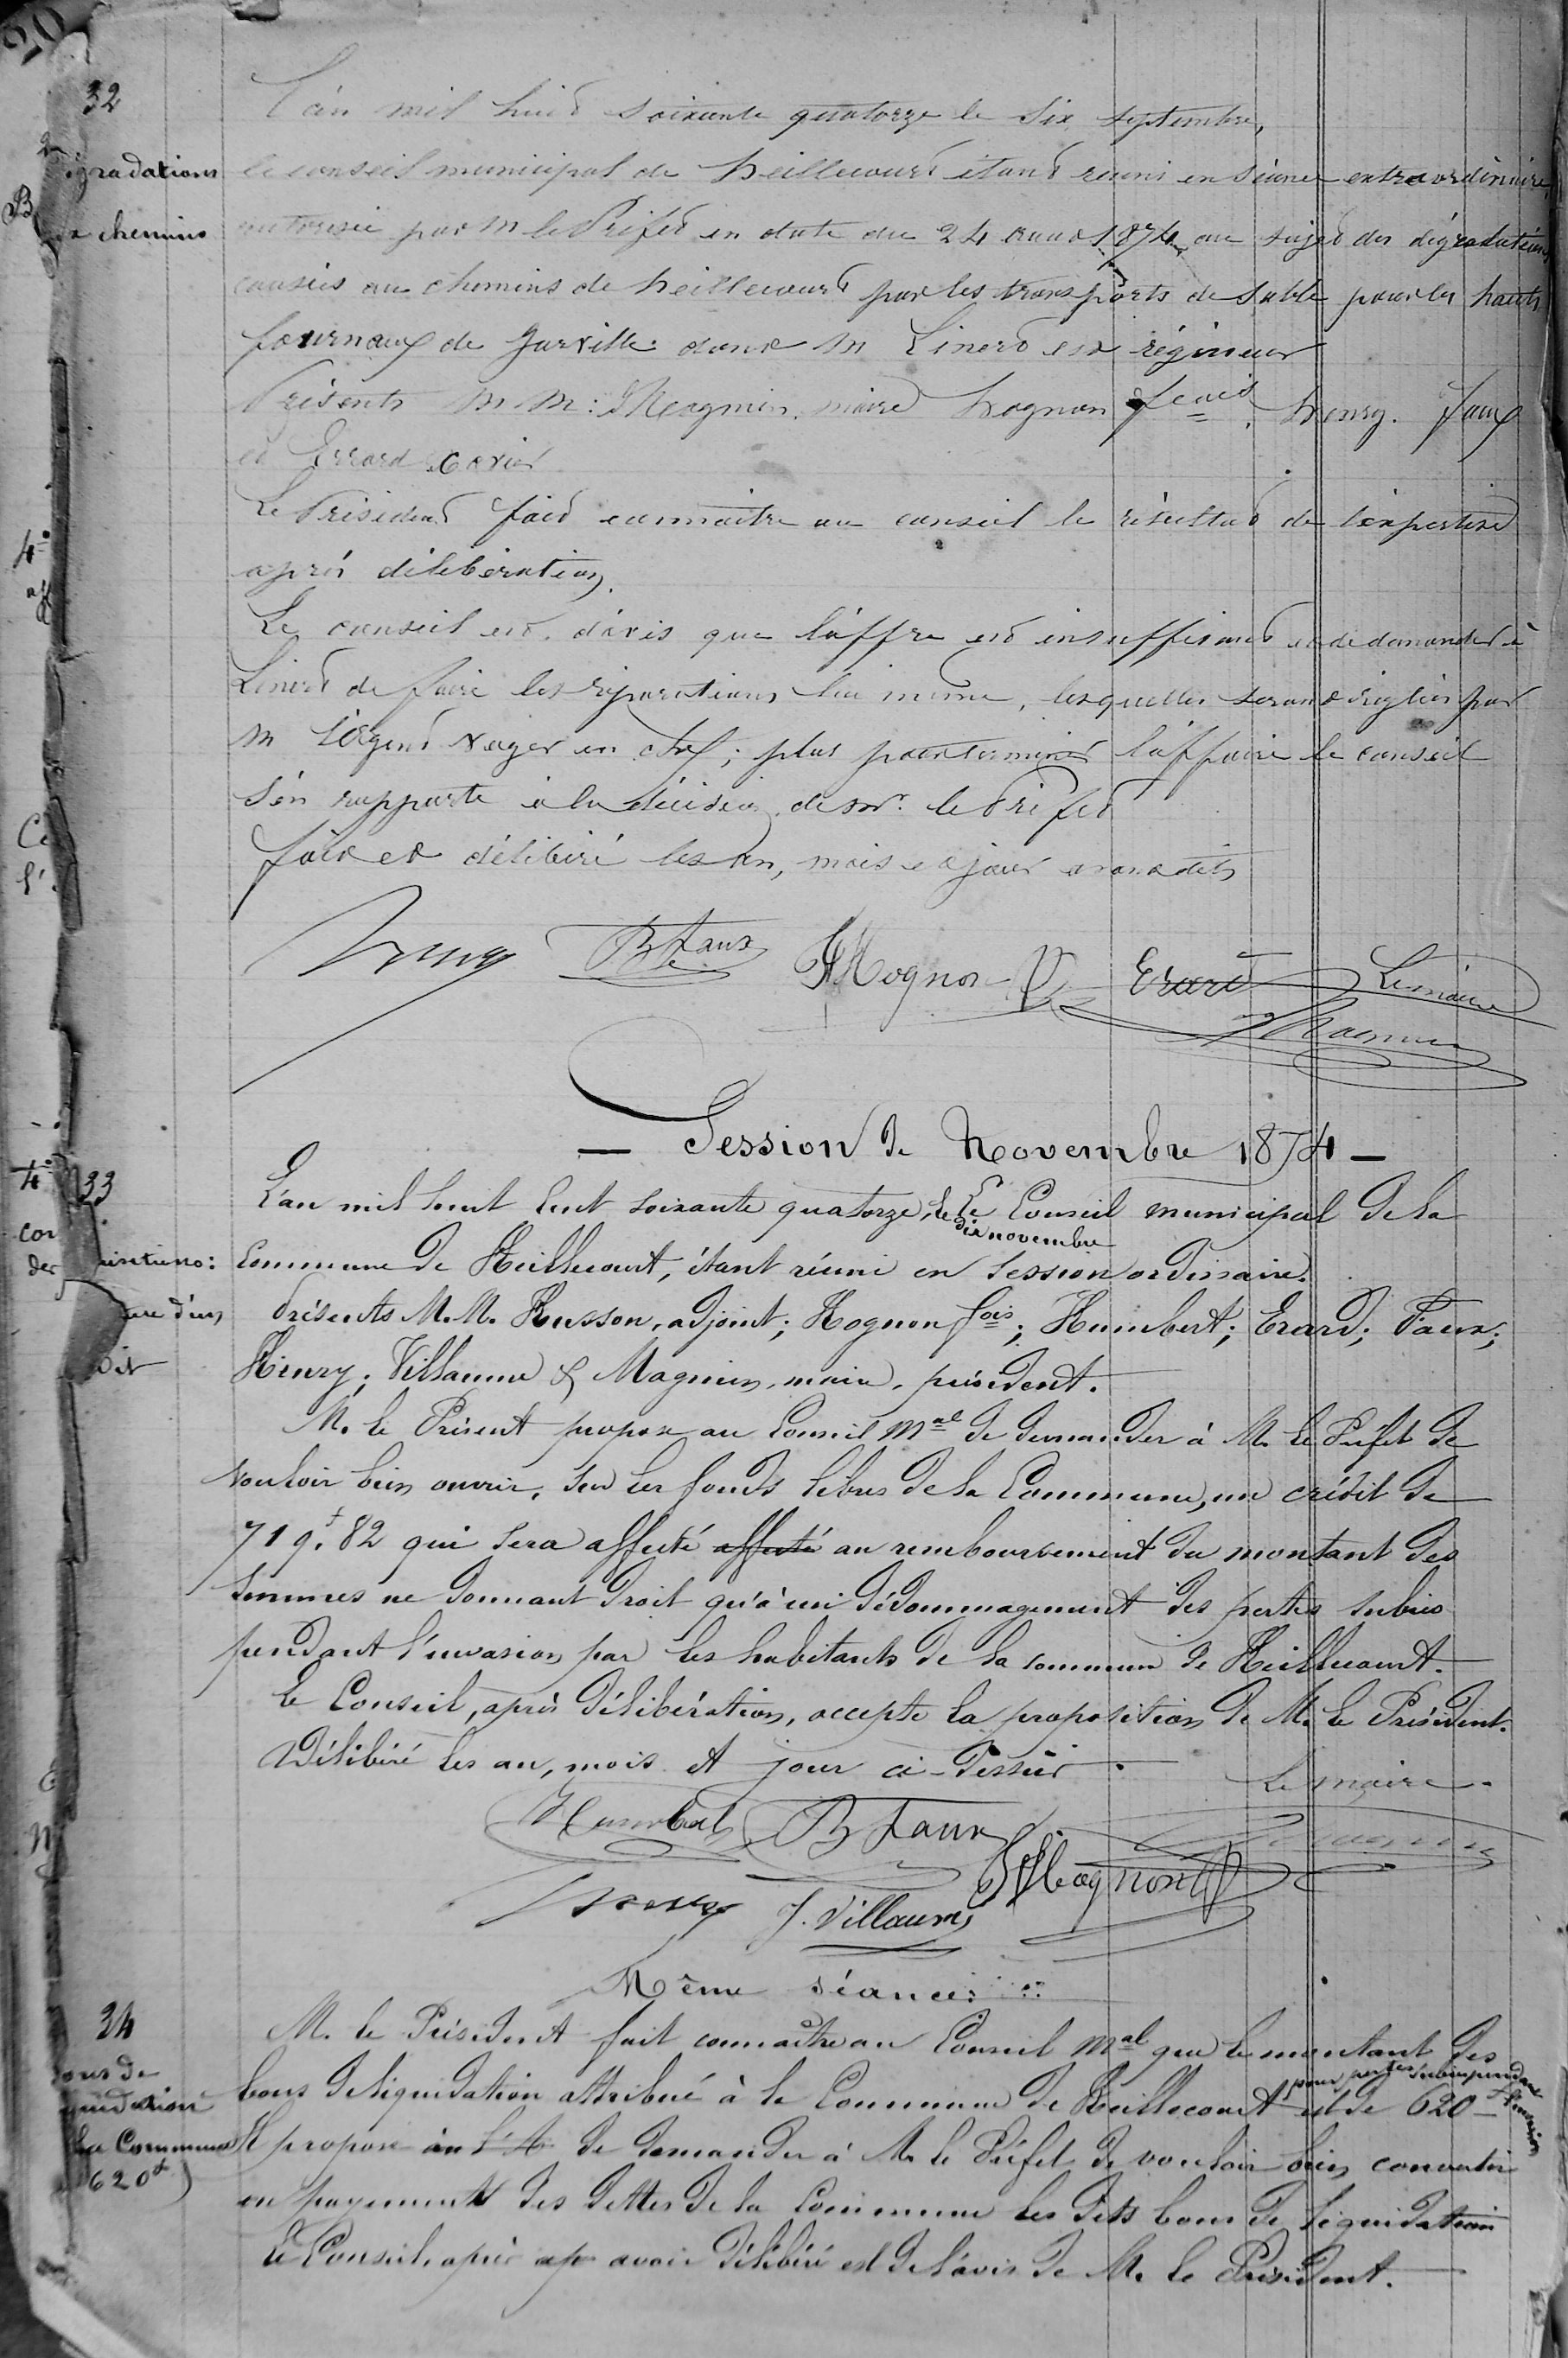 32
L'an mil huit soixante quatorze le six septembre,
dégradations
le conseil municipal de heillecourt étant réuni en séance extraordinaire
chemins
autorisée par M le Préfet en date du 24 aout 1874 au sujet des dégradations
causées au chemins de heillecourt par les transports de sable pour les hauts
fournaux de Jarville dont M Linerd est régisseur
Présents M M: Magnin, maire hognon fcois, henry. faux
et Errard xavier
Le Président fait connaitre au conseil le résultat de l'expertise
après délibération.
Le conseil est d'avis que l'offre est insuffisant et de demander à
Linerd de faire les réparations lui même, lesquelles seront réglées par
M l'Agent Voyer en chef; plus pour terminer l'affaire le conseil
s'en rapporte à la décision de Mr. le Préfet
fait et délibéré les an, mois et jour avant dits
henry B faux Hognon Erard Le maire
Magnin
— Session de Novembre 1874 —
33
L'an mil huit Cent soixante quatorze, le dix novembre Le Conseil municipal de la
Commune de Heillecourt, étant réuni en session ordinaire.
Présents M.M. Husson, adjoint; Hognon fois; Humbert; Erard; Faux;
Henry; Villaume & Magnin, maire, président.
M. le Présent propose au Conseil Mal de demander à M. le Préfet de
vouloir bien ouvrir, sur les fonds libres de la Commune, un crédit de
719.f 82 qui sera affecté affecté au remboursement du montant des
sommes ne donnant droit qu'à un dédommagement des pertes subies
pendant l'invasion par les habitants de la commune de Heillecourt.
Le Conseil, après délibération, accepte la proposition de M. le Président.
Délibéré les an, mois et jour ci-dessus.
Le maire.
Humbert B Faux Magnin
henry J. Villaume Hognon
Même séance:
34
M. le Président fait connaître au Conseil Mal que le montant des
bons de liquidation attribué à la Commune de Heillecourt pour pertes subies pendant l'invasion est de 620 f
la Commune
620f
Il propose de demander à M. le Préfet de vouloir bien convertir
en payement des dettes de la Commune les dits bons de liquidation
Le Conseil, après ap avoir délibéré est de l'avis de M. le Président.